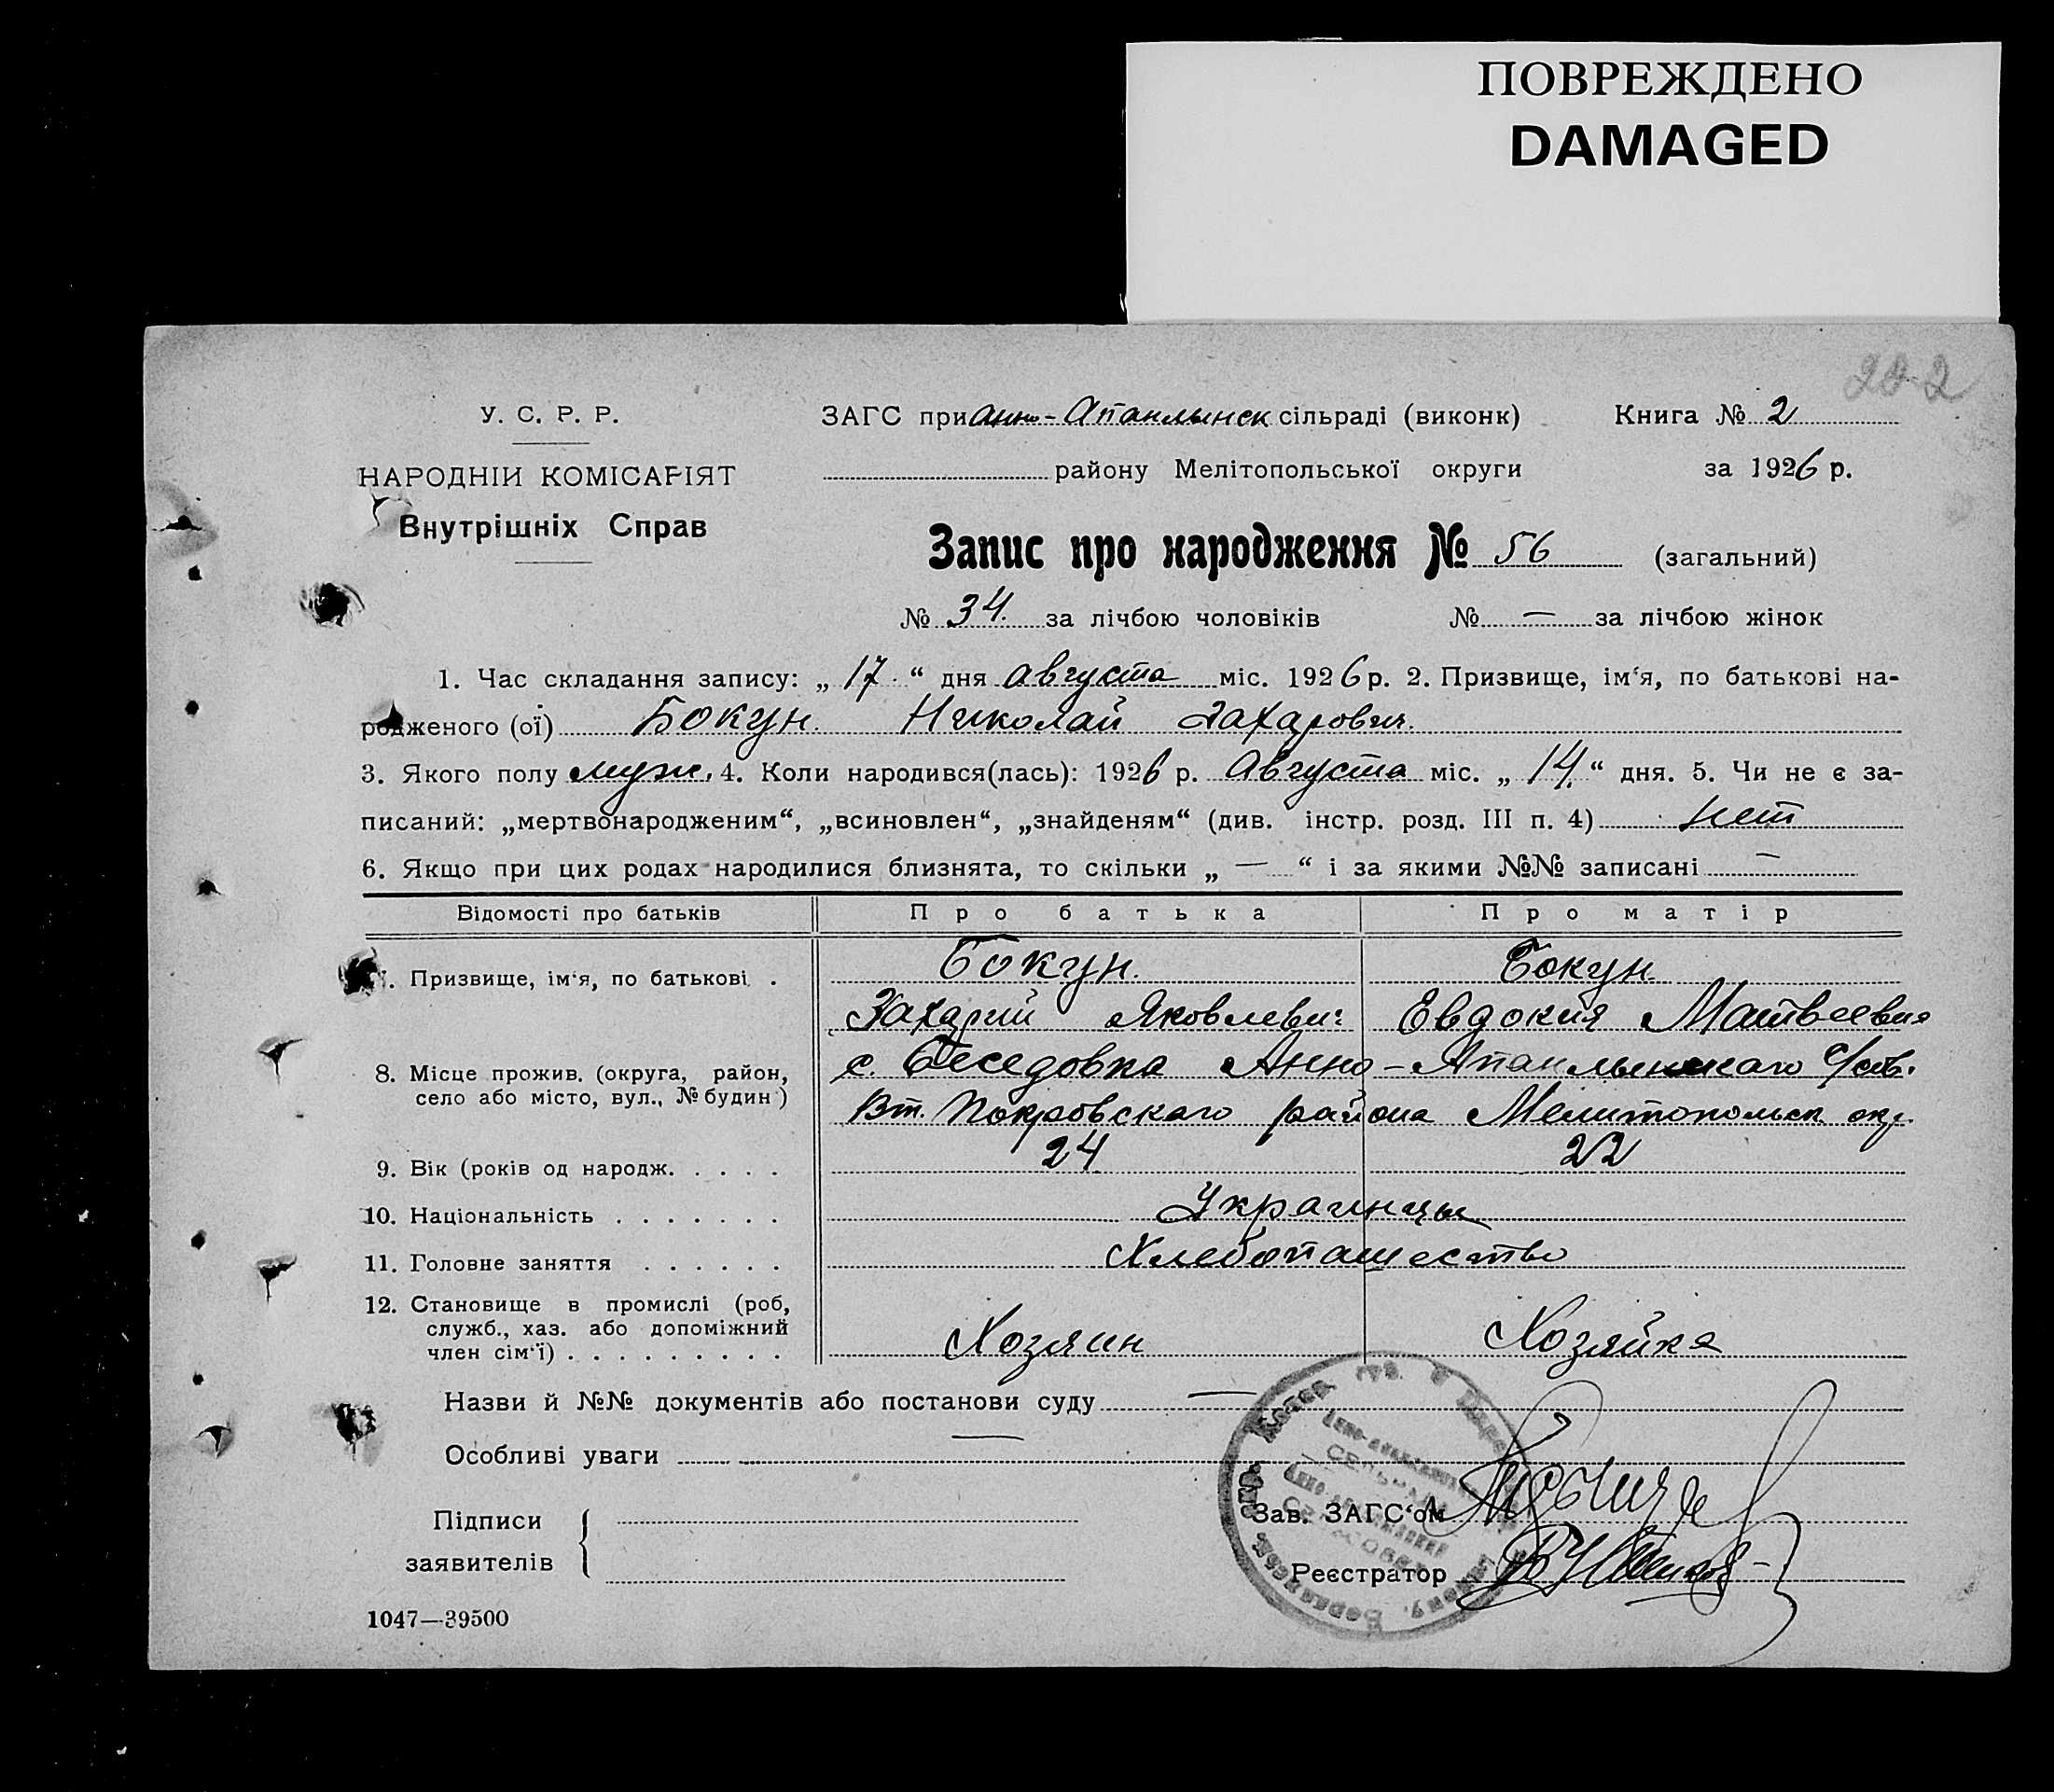 ПОВРЕЖДЕНО
DAMAGED
222
У. С. Р. Р.
НАРОДНІЙ КОМІСАРІЯТ
Внутрішніх Справ
ЗАГС при Анно-Апанлынск сільраді (виконк)
Книга № 2
району Мелітопольської округи
за 1926 р.
Запис про народження № 56 (загальний)
№ 34. за лічбою чоловіків № — за лічбою жінок
1. Час складання запису: „ 17 “ дня Августа міс. 1926 р. 2. Призвище, ім‘я, по батькові на-
родженого (ої) Бокун. Николай Захарович.
3. Якого полу муж. 4. Коли народився(лась): 1926 р. Августа міс. „ 14. “ дня. 5. Чи не є за-
писаний: „мертвонародженим“, „всиновлен“, „знайденям“ (див. інстр. розд. III п. 4) нет
6. Якщо при цих родах народилися близнята, то скільки „ — “ і за якими №№ записані —
Відомості про батьків Про батька Про матір
7. Призвище, ім‘я, по батькові . Бокун. Бокун.
Захарий Яковлевич Евдокия Матвеевна
8. Місце прожив. (округа, район,
село або місто, вул., № будин)
с. Беседовка Анно-Апанлынскаго с/сов.
Вт. Покровскаго района Мелитопольск. окр.
9. Вік (років од народж. . . . . 24 22
10. Національність . . . . . . . Украинцы
11. Головне заняття . . . . . . Хлебопашество
12. Становище в промислі (роб,
служб., хаз. або допоміжний
член сім‘ї) . . . . . . . . . Хозяин Хозяйка
Назви й №№ документів або постанови суду —
Особливі уваги —
Підписи
заявителів
Зав. ЗАГС‘ом
Реєстратор
1047—39500